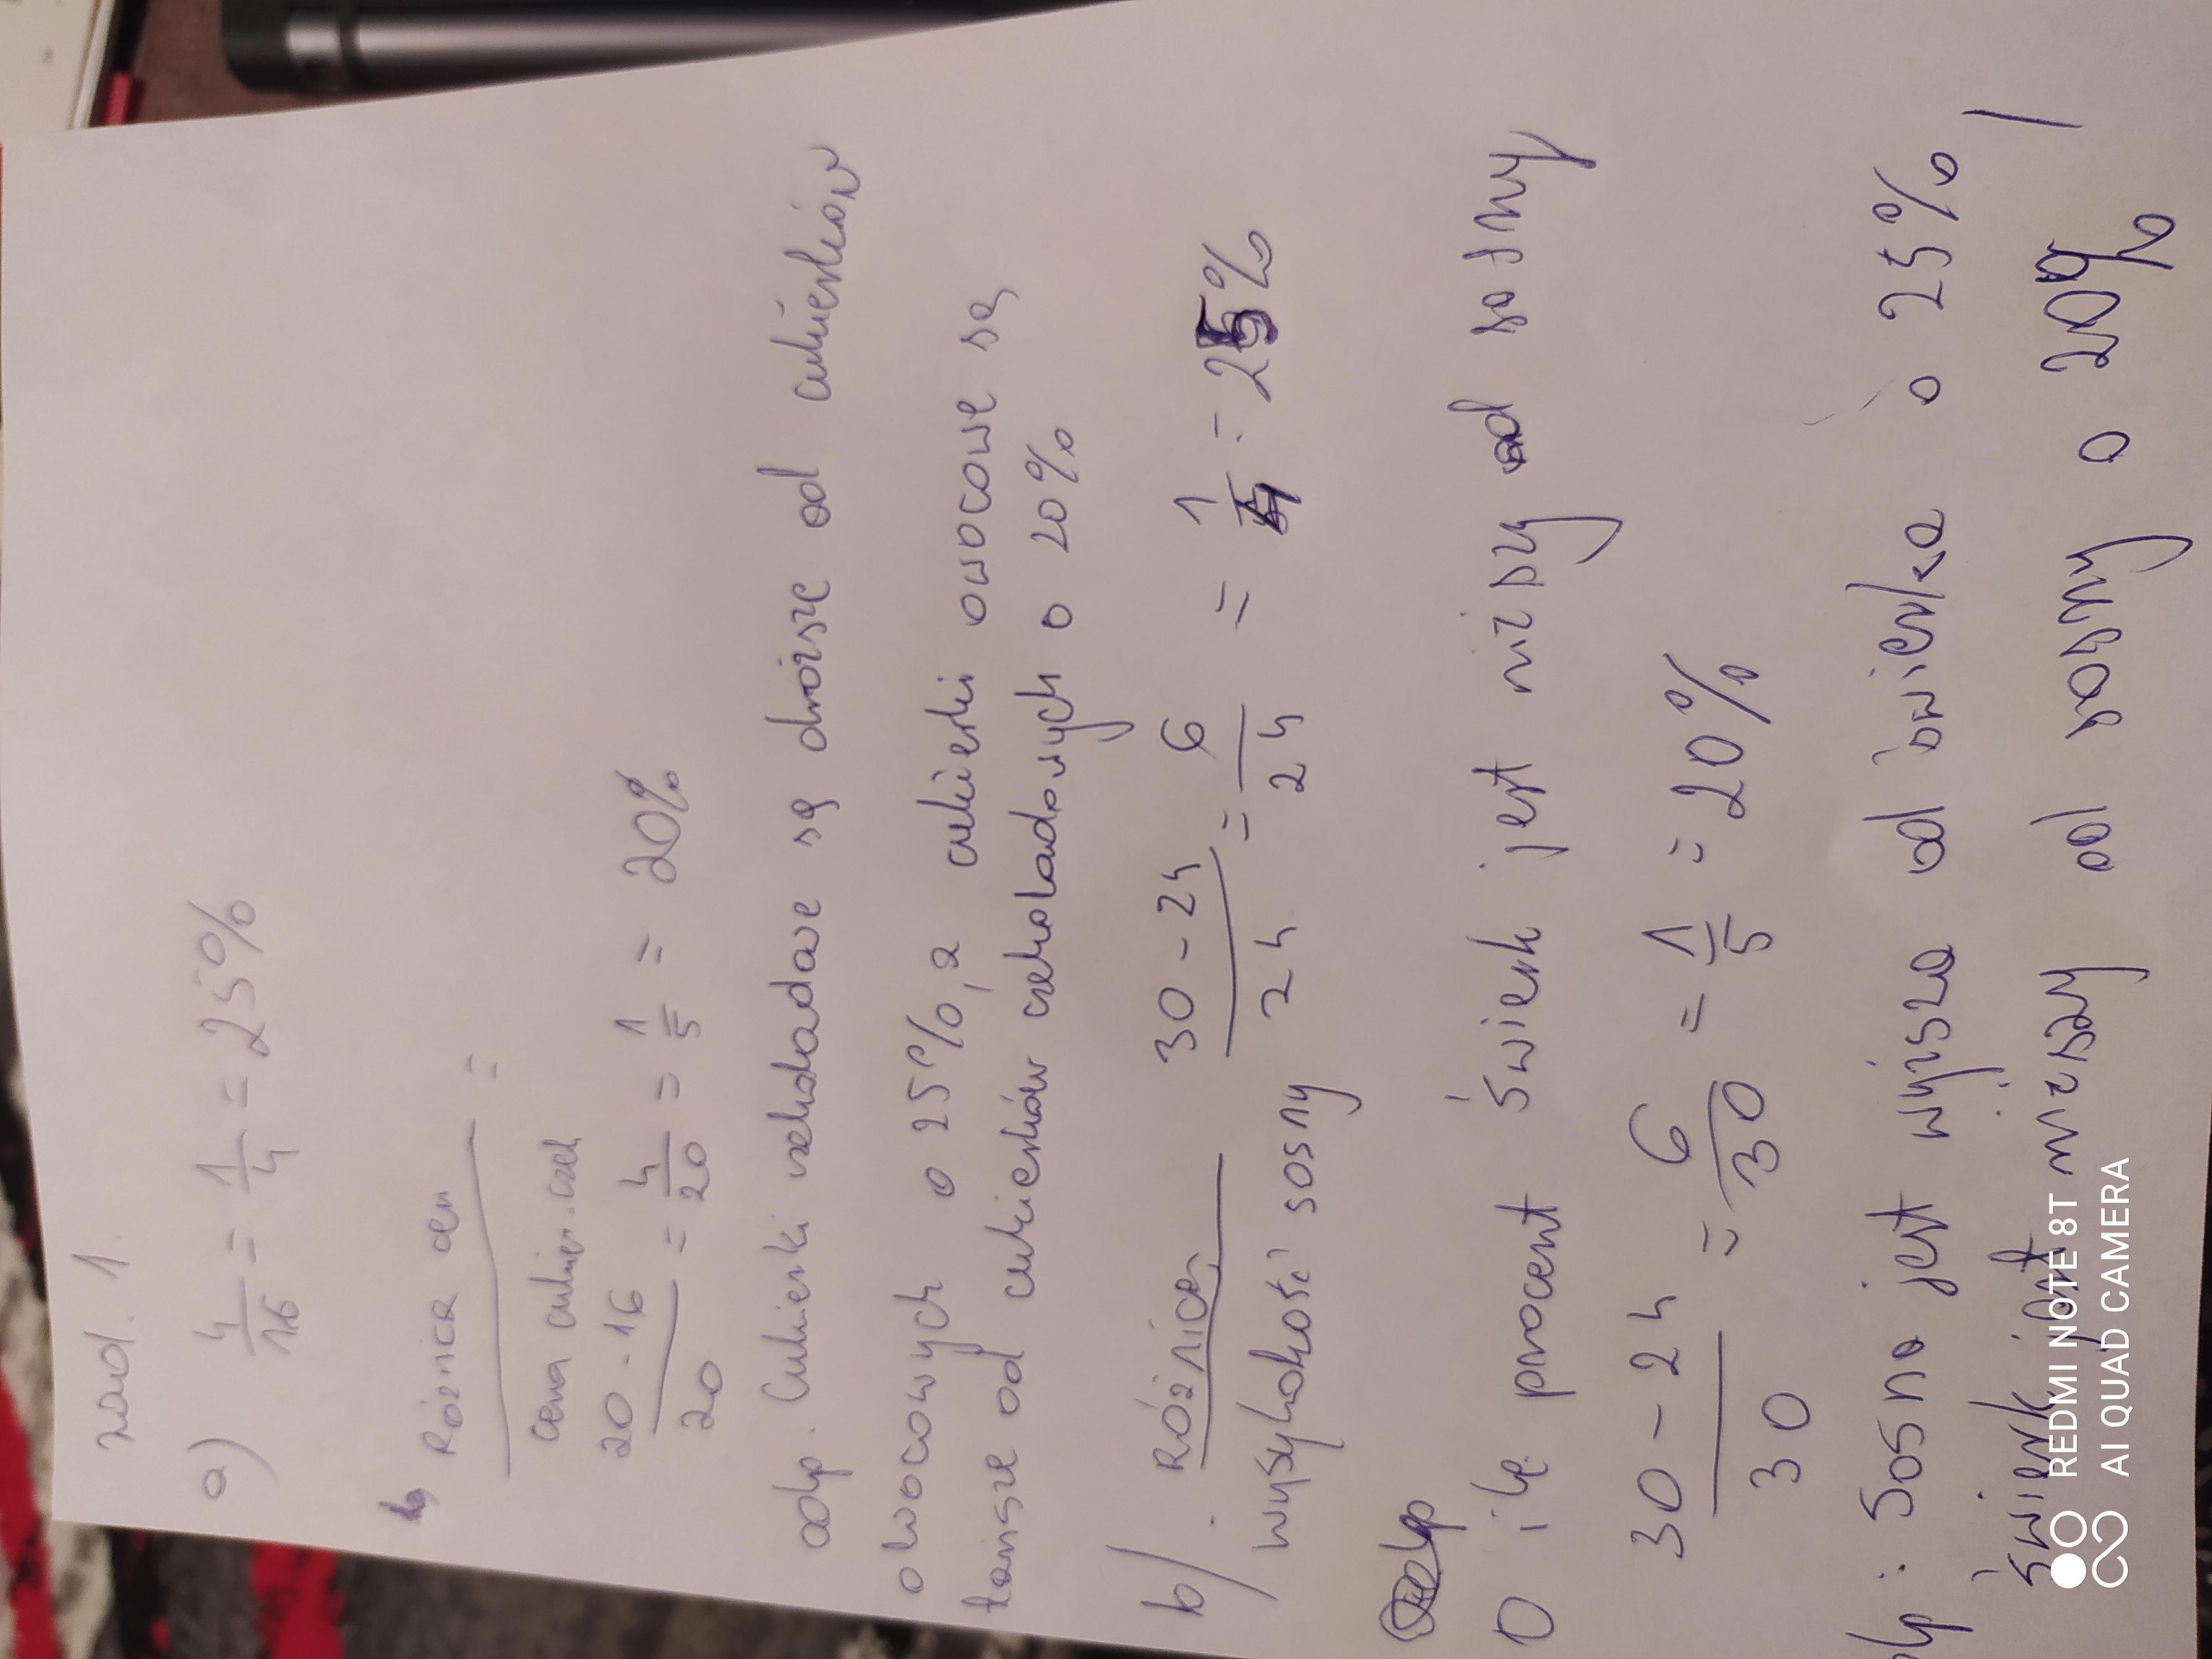 zad. 1.
a) 4/16 = 1/4 = 25%
Różnica cen
cena cukier. czek =
20 - 16 / 20 = 4/20 = 1/5 = 20%
odp. Cukierki czekoladowe są droższe od cukierków
owocowych o 25%, a cukierki owocowe są
tańsze od cukierków czekoladowych o 20%
b/. Różnica / wysykości sosny 30 - 24 / 24 = 6/24 = 1/4 = 25%
O ile procent świerk jest niższy od sosny
30 - 24 / 30 = 6/30 = 1/5 = 20%
: Sosna jest wyższa od świerka o 25% /
świerk jest niższy od sosny o 20%
REDMI NOTE 8T
AI QUAD CAMERA